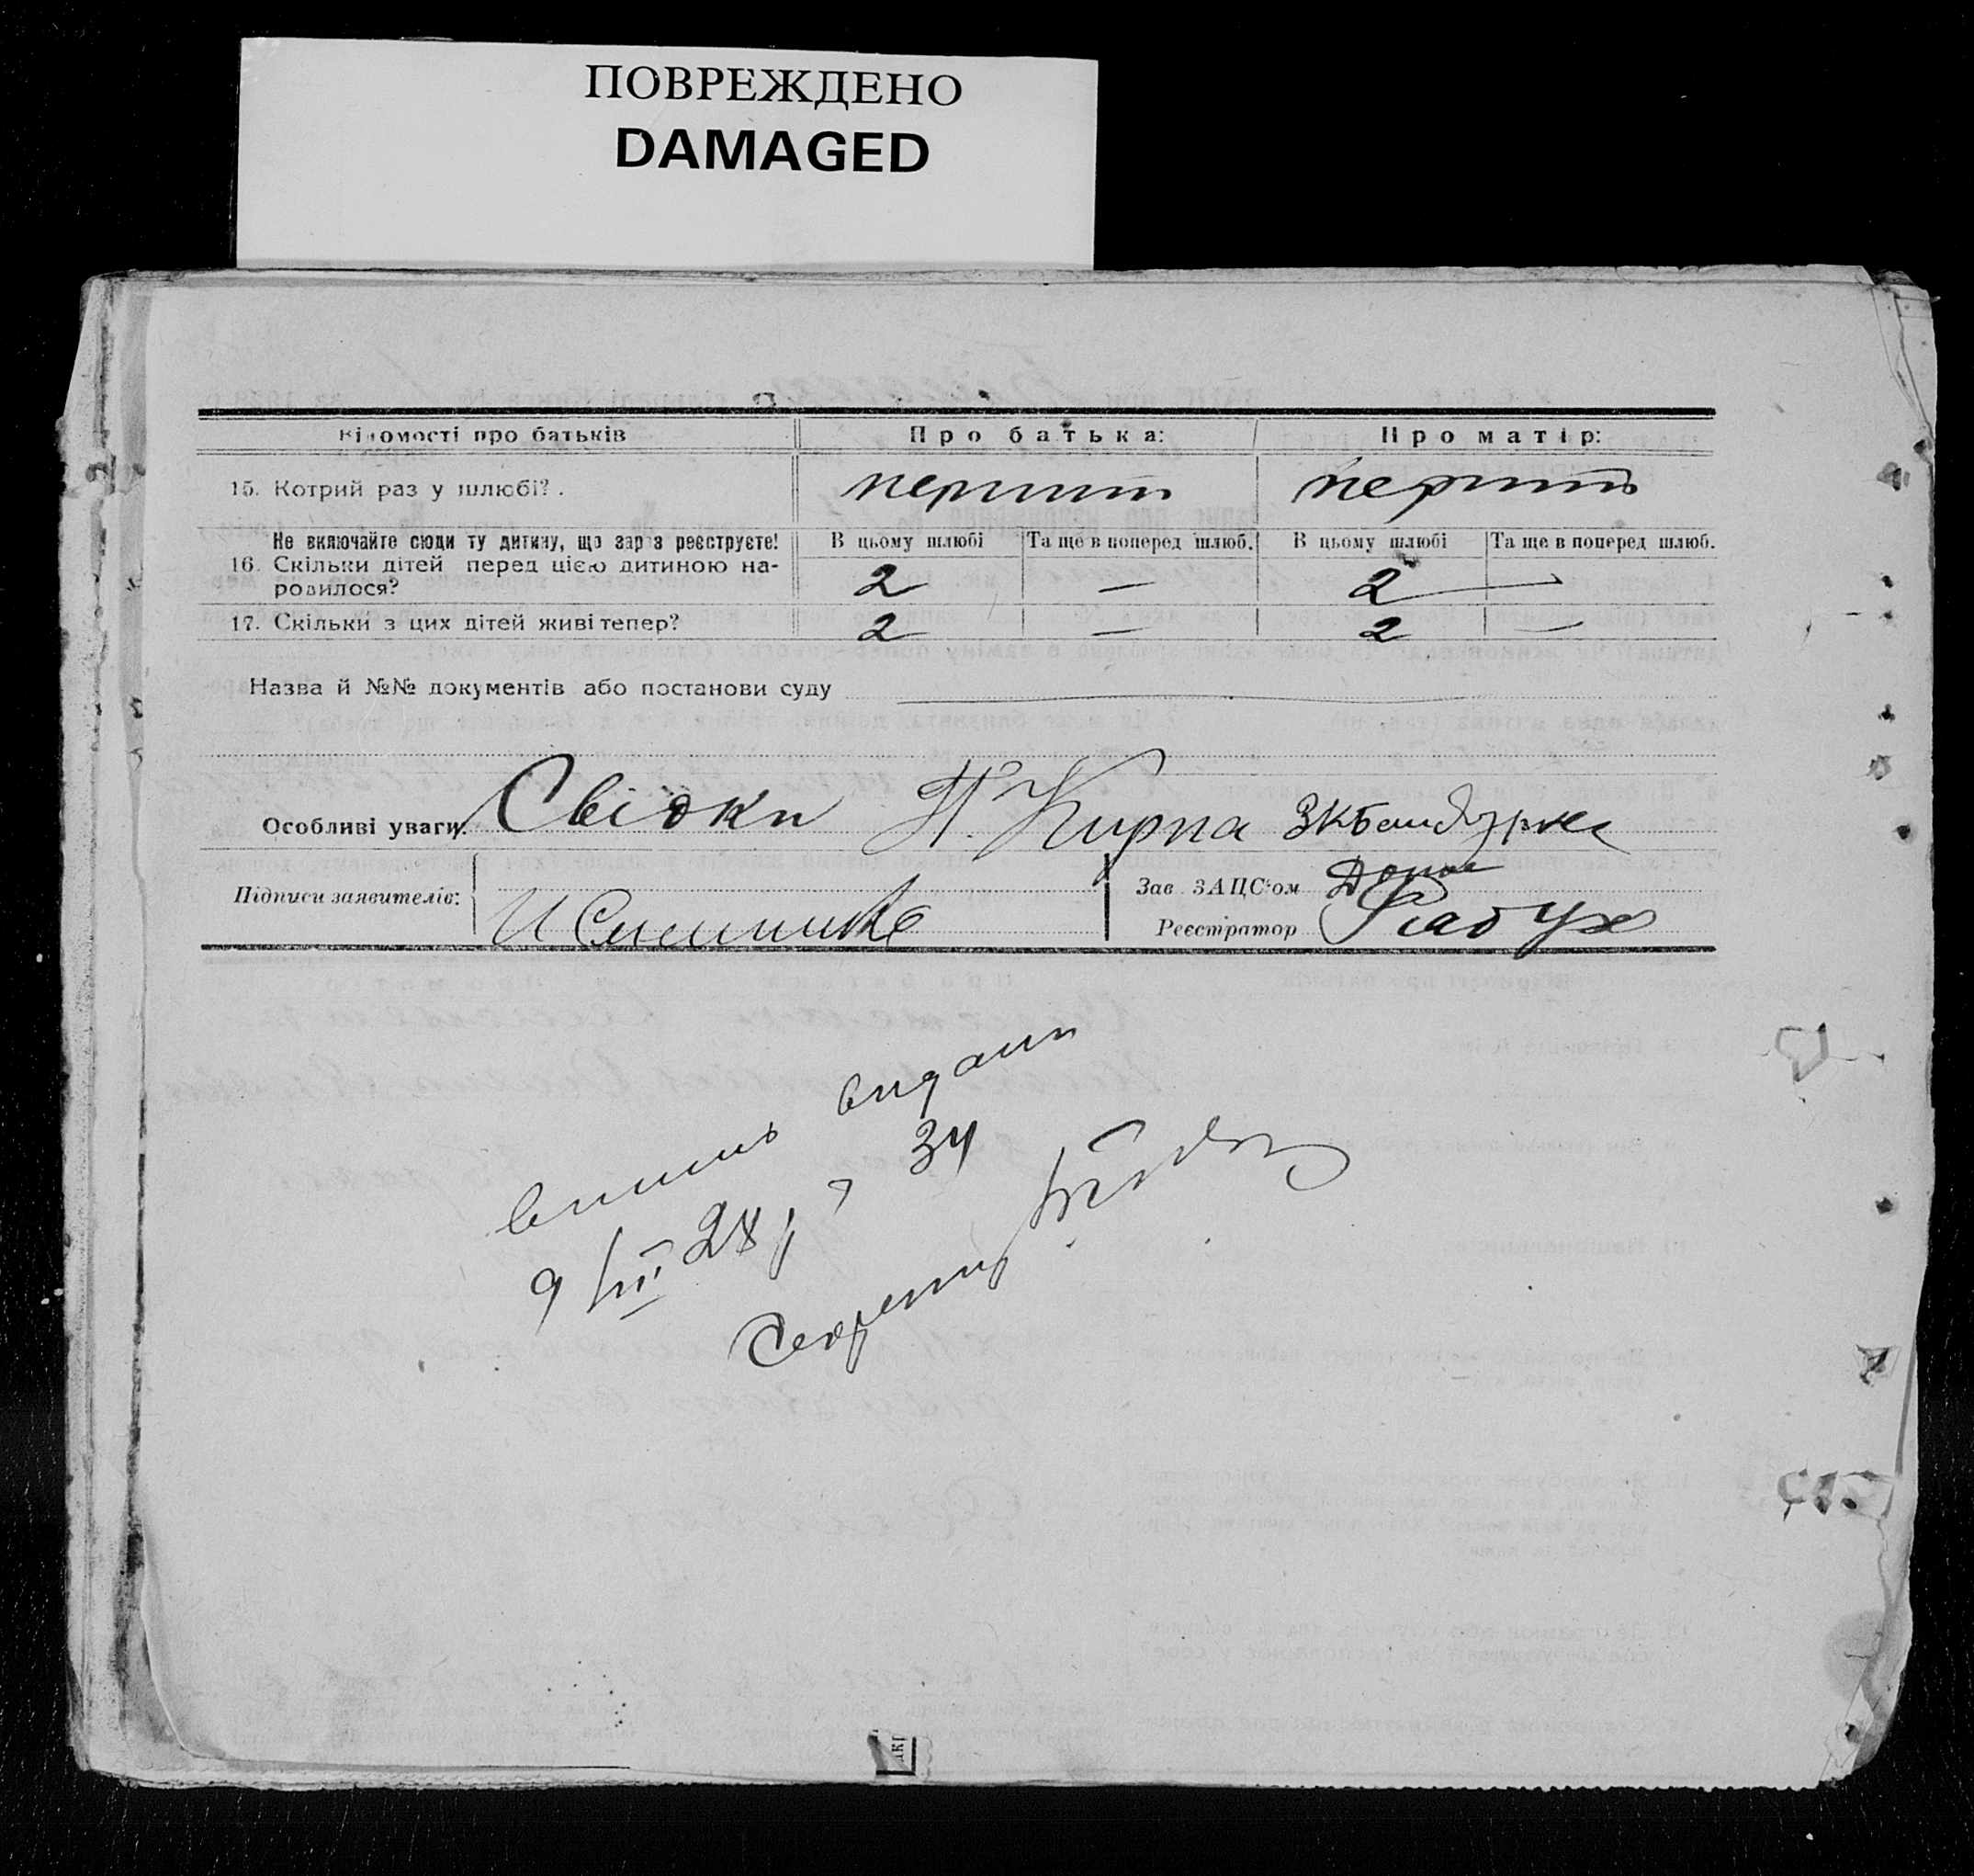 ПОВРЕЖДЕНО
DAMAGED
Відомості про батьків
Про батька:
Про матір:
15. Котрий раз у шлюбі?.
перший
перший
Не включайте сюди ту дитину, що зараз реєструєте!
В цьому шлюбі
Та ще в поперед шлюб.
В цьому шлюбі
Та ще в поперед шлюб.
16. Скільки дітей перед цією дитиною на-
родилося?
2 — 2 —
17. Скільки з цих дітей живі тепер?
2 — 2 —
Назва й №№ документів або постанови суду
Особливі уваги: Свідки Н. Кирпа
Підписи заявителів:
Зав ЗАЦС'ом
Реєстратор
випись видана
9/III 28 р 34
Секретар